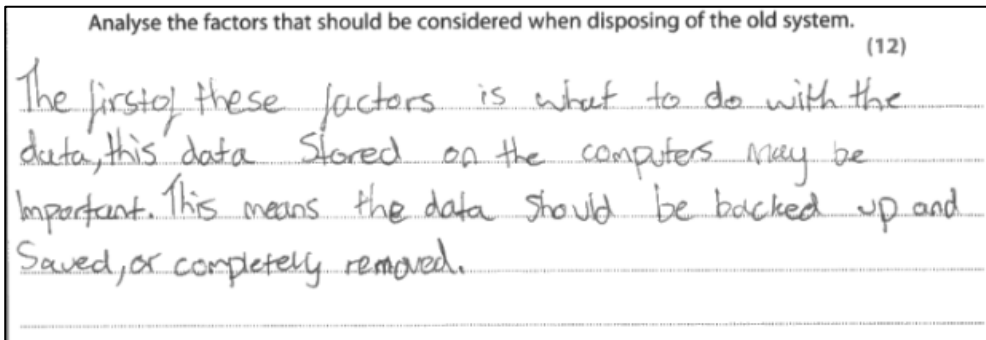 Analyse the factors that should be considered when disposing of the old system.
(12)
The first of these factors is what to do with the
data, this data Stored on the computers may be
Important. This means the data should be backed up and
Saved, or completely removed.